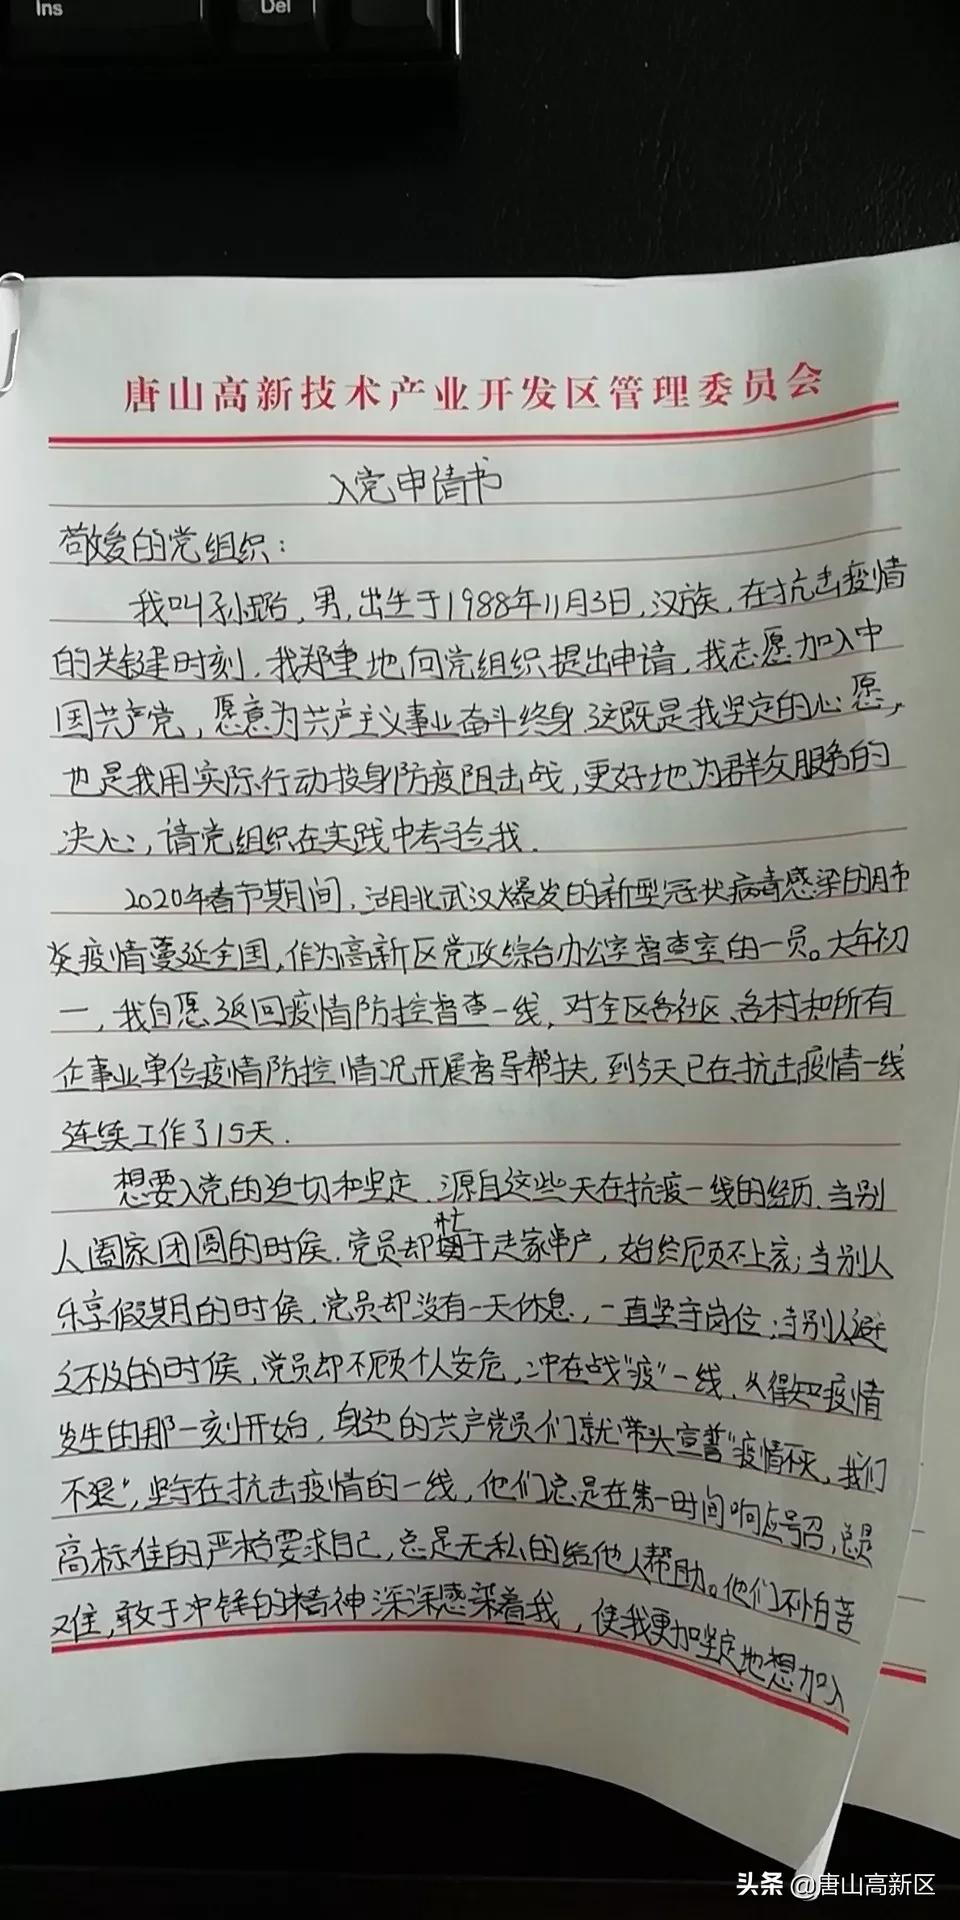 Ins Del
唐山高新技术产业开发区管理委员会
入党申请书
敬爱的党组织：
我叫孙璐，男，出生于1988年11月3日，汉族，在抗击疫情
的关键时刻，我郑重地向党组织提出申请，我志愿加入中
国共产党，愿意为共产主义事业奋斗终身．这既是我坚定的心愿，
也是我用实际行动投身防疫阻击战，更好地为群众服务的
决心，请党组织在实践中考验我．
2020年春节期间，湖北武汉爆发的新型冠状病毒感染的肺
炎疫情蔓延全国，作为高新区党政综合办公室督查室的一员。大年初
一，我自愿返回疫情防控督查一线，对全区各社区、各村和所有
企事业单位疫情防控情况开展督导帮扶，到今天已在抗击疫情一线
连续工作了15天．
想要入党的迫切和坚定．源自这些天在抗疫一线的经历．当别
人阖家团圆的时候，党员却忙于走家串户，始终顾不上家；当别人
乐享假期的时候，党员却没有一天休息，一直坚守岗位；当别人避
之不及的时候，党员却不顾个人安危，冲在战“疫”一线．从得知疫情
发生的那一刻开始，身边的共产党员们就带头宣誓“疫情不灭，我们
不退”，坚守在抗击疫情的一线，他们总是在第一时间响应号召，总是
高标准的严格要求自己，总是无私的给他人帮助。他们不怕苦
难，敢于冲锋的精神深深感染着我，使我更加坚定地想加入
头条 @唐山高新区